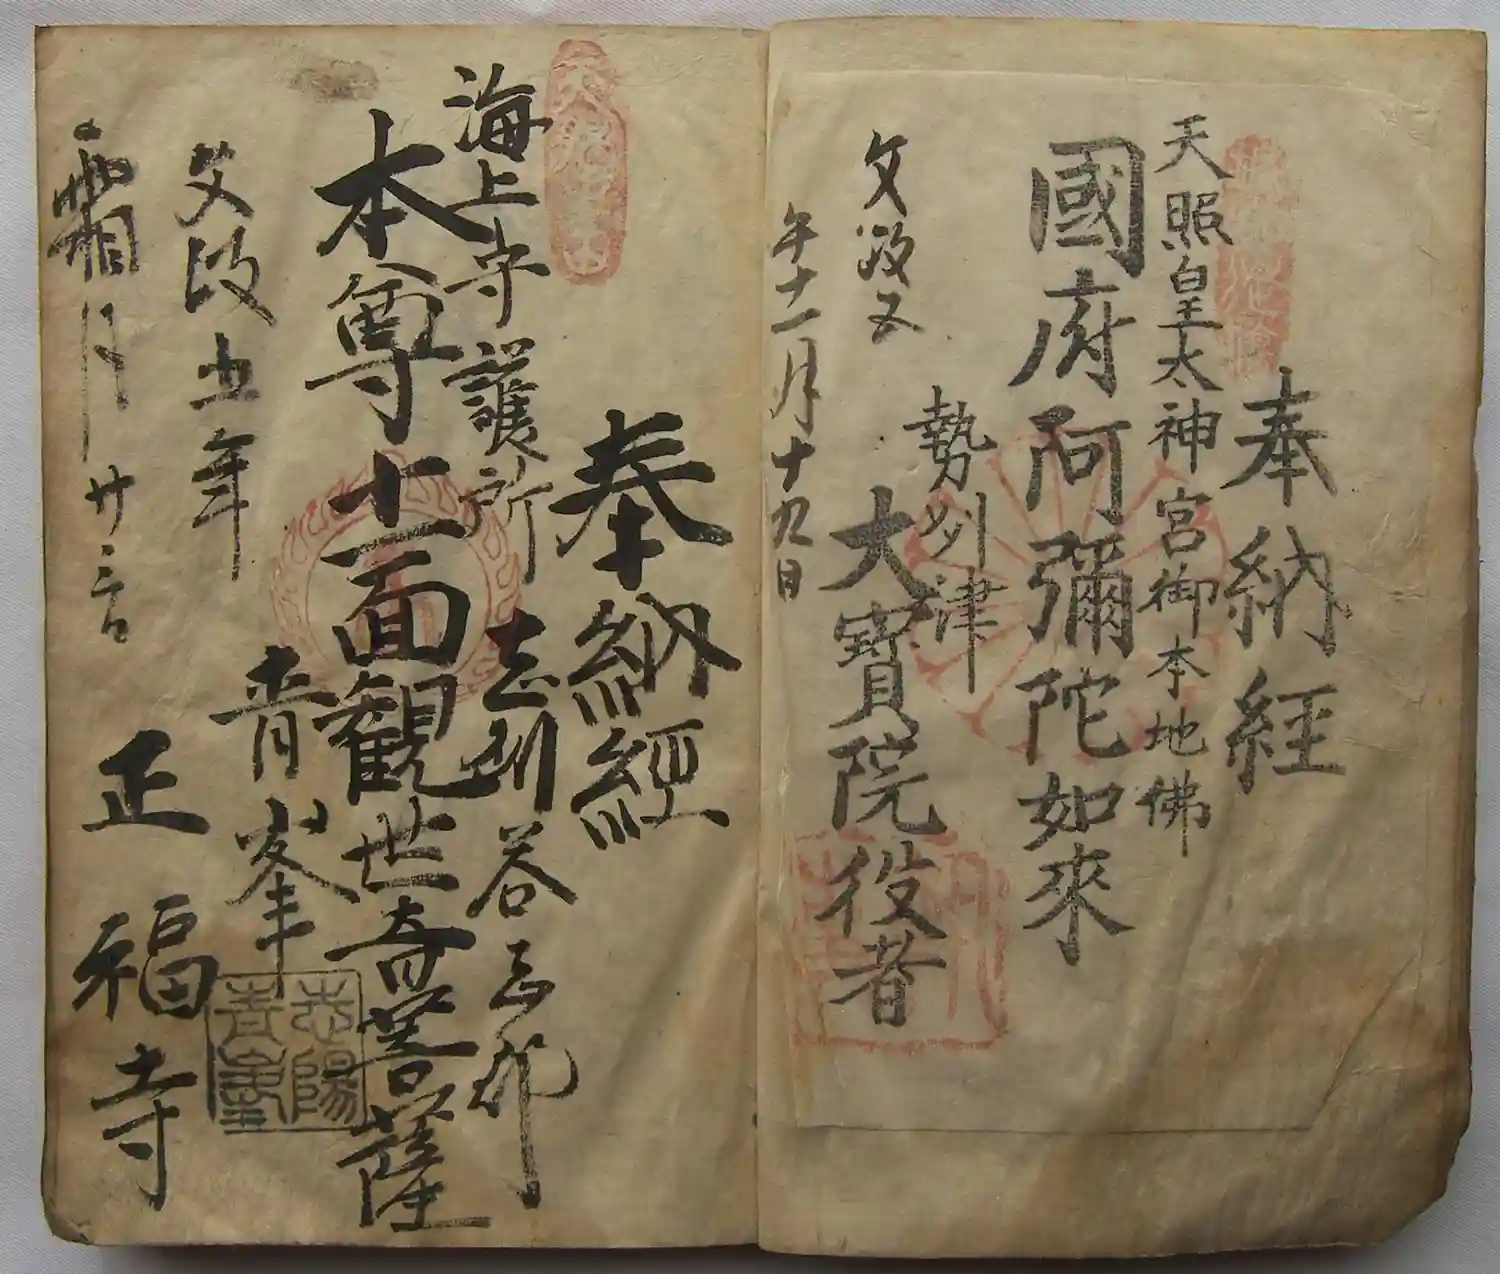 奉納経
天照皇太神宮御本地佛
國府阿彌陀如來
勢刕津
大寶院役者
文政五
午十一月十九日
奉納經
志州答志郡
海上守護所
本尊十一面観世音菩薩
青峯
正福寺
文政五年
霜月廿二日
志陽
青峯